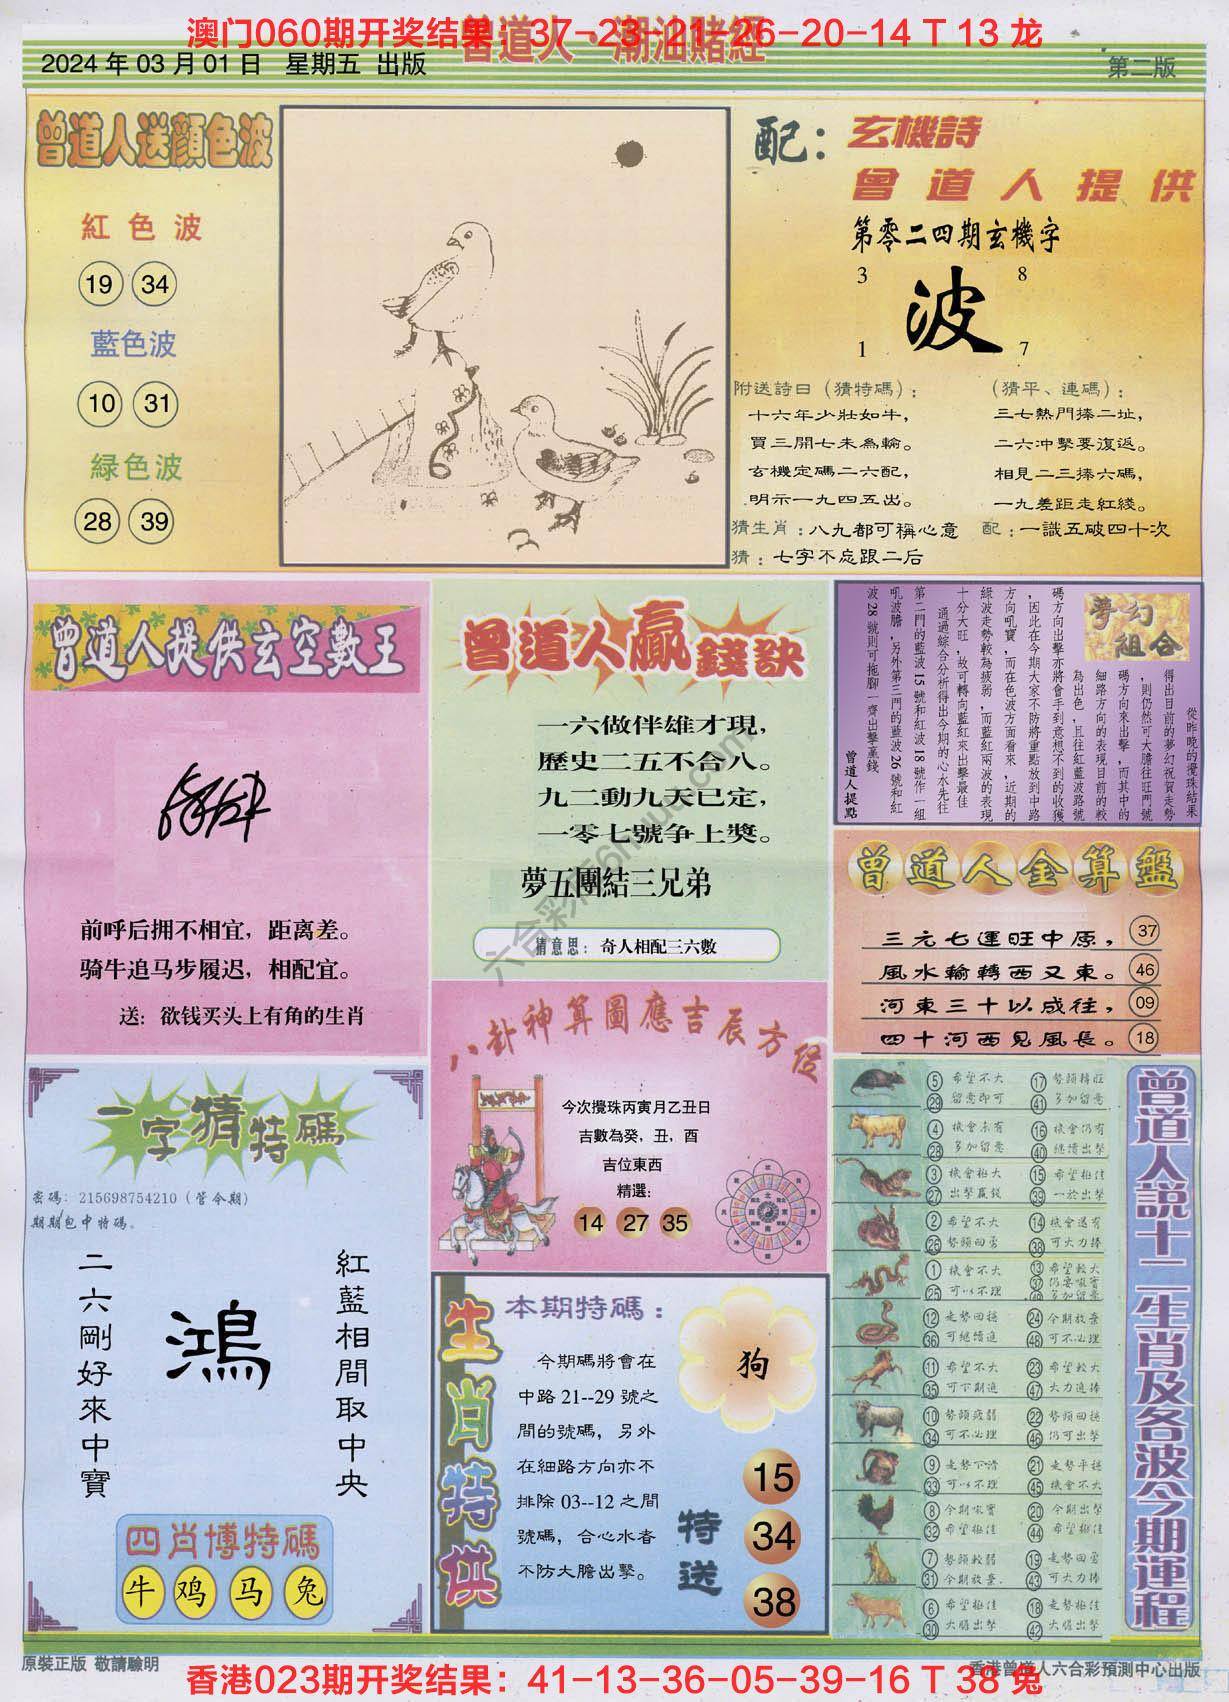 澳门060期开奖结果：37-23-21-26-20-14 T 13 龙
曾道人·潮汕赌經
2024 年 03 月 01 日 星期五 出版
第二版
曾道人送顏色波
紅色波
19 34
藍色波
10 31
緑色波
28 39
配：
玄機詩
曾道人提供
第零二四期玄機字
3 8
波
1 7
附送詩曰（猜特碼）：
十六年少壯如牛，
買三開七未為輸。
玄機定碼二六配，
明示一九四五出。
（猜平、連碼）：
三七熱門捧二址，
二六冲擊要復返。
相見二三捧六碼，
一九差距走紅綫。
猜生肖：八九都可稱心意
配：一識五破四十次
猜：七字不忘跟二后
曾道人提供玄空數王
前呼后拥不相宜，距离差。
骑牛追马步履迟，相配宜。
送：欲钱买头上有角的生肖
曾道人贏錢訣
一六做伴雄才現，
歷史二五不合八。
九二動九天已定，
一零七號争上獎。
夢五團結三兄弟
猜意思：奇人相配三六數
夢幻組合
從昨晚的攪珠結果
得出目前的夢幻祝賀走勢
，則仍然可大膽往旺門號
碼方向來出擊，而其中的
細路方向的表現目前的較
為出色，且往紅藍波路號
碼方向出擊亦將會手到意想不到的收獲
，因此在今期大家不防將重點放到中路
方向吼寶，而在色波方面看來，近期的
綠波走勢較為疲弱，而藍紅兩波的表現
十分大旺，故可轉向藍紅來出擊最佳
通過綜合分析得出今期的心水先往
第二門的藍波 15 號和紅波 18 號作一組
吼波膽，另外第三門的藍波 26 號和紅
波 28 號則可拖腳一齊出擊贏錢
曾道人提點
曾道人金算盤
三元七運旺中原， 37
風水輪轉西又東。 46
河東三十以成往， 09
四十河西見風長。 18
八卦神算圖應吉辰方位
今次攪珠丙寅月乙丑日
吉數為癸，丑，酉
吉位東西
精選：
14 27 35
一字猜特碼
密碼：215698754210（管令期）
期期包中特碼。
紅藍相間取中央
鴻
二六剛好來中寶
四肖博特碼
牛 鸡 马 兔
生肖特供
本期特碼：
今期碼將會在
中路 21--29 號之
間的號碼，另外
在細路方向亦不
排除 03--12 之間
號碼，合心水者
不防大膽出擊。
狗
特送
15
34
38
曾道人説十二生肖及各波今期運程
5 希望不大 17 勢頭轉旺
29 留意即可 41 多加留意
4 機會未有 16 機會仍有
28 多加留意 40 繼續出擊
3 機會極大 15 希望極佳
27 出擊贏錢 39 一於出擊
2 希望不大 14 機會還有
26 勢頭回勇 38 可大力捧
1 機會不大 13 希望較大
25 可以不理 37 仍要吸寶
49 多加留意
12 走勢回穩 24 今期放棄
36 可繼續追 48 可不必理
11 希望不大 23 希望較大
35 可下期追 47 大力追捧
10 勢頭疲弱 22 勢頭回穩
34 可不必理 46 仍可出擊
9 走勢下滑 21 走勢平穩
33 可以不理 45 機會不大
8 今期吸寶 20 今期出擊
32 希望極佳 44 希望極佳
7 勢頭較弱 19 走勢回勇
31 今期放棄 43 可大力捧
6 希望極佳 18 走勢極佳
30 大膽出擊 42 大膽出擊
原裝正版 敬請驗明
香港曾道人六合彩預測中心出版
香港023期开奖结果：41-13-36-05-39-16 T 38 兔